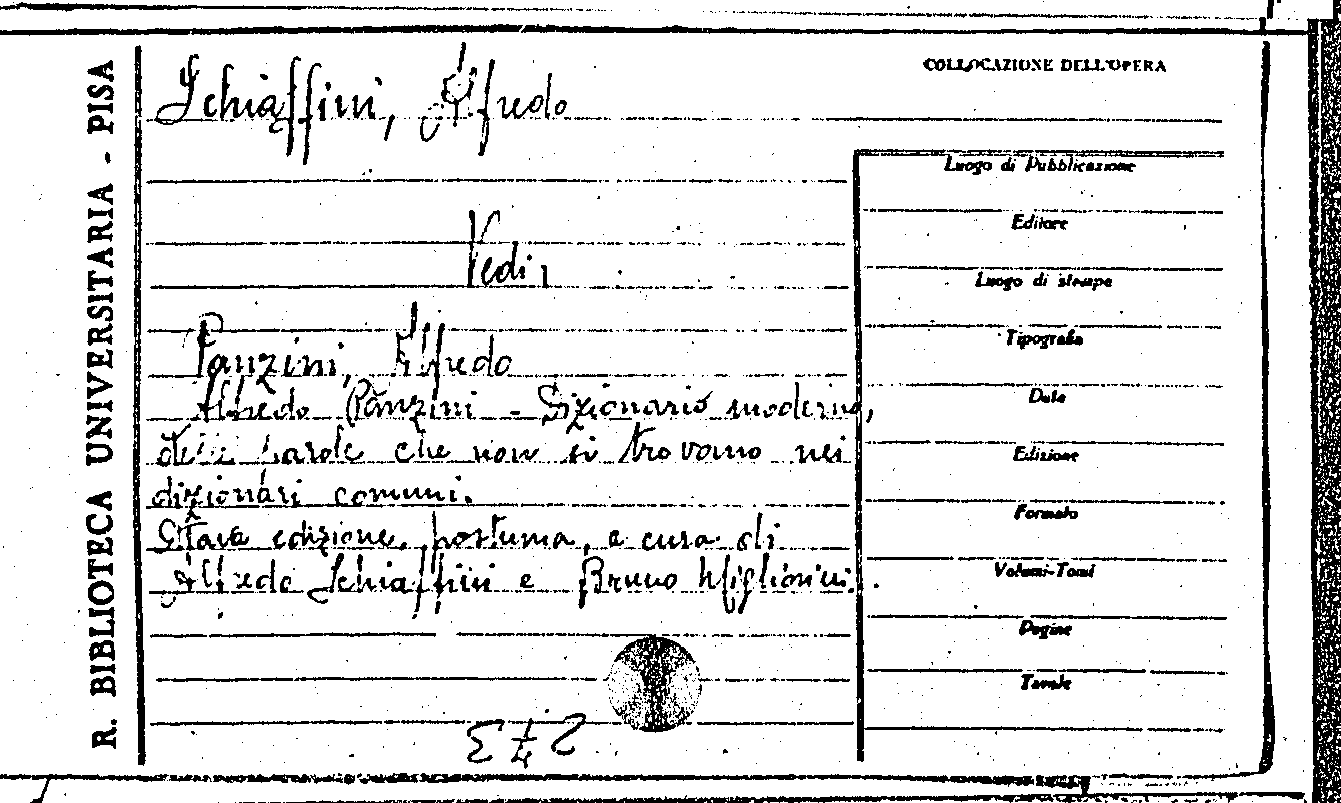 R. BIBLIOTECA UNIVERSITARIA - PISA
COLLOCAZIONE DELL'OPERA
Schiaffini, Alfredo
Vedi,
Panzini, Alfredo
Alfredo Panzini - Dizionario moderno,
delle parole che non si trovano nei
dizionari comuni.
Ottava edizione, postuma, a cura di
Alfredo Schiaffini e Bruno Migliorini.
Luogo di Pubblicazione
Editore
Luogo di stampa
Tipografia
Data
Edizione
Formato
Volumi-Tomi
Pagine
Tavole